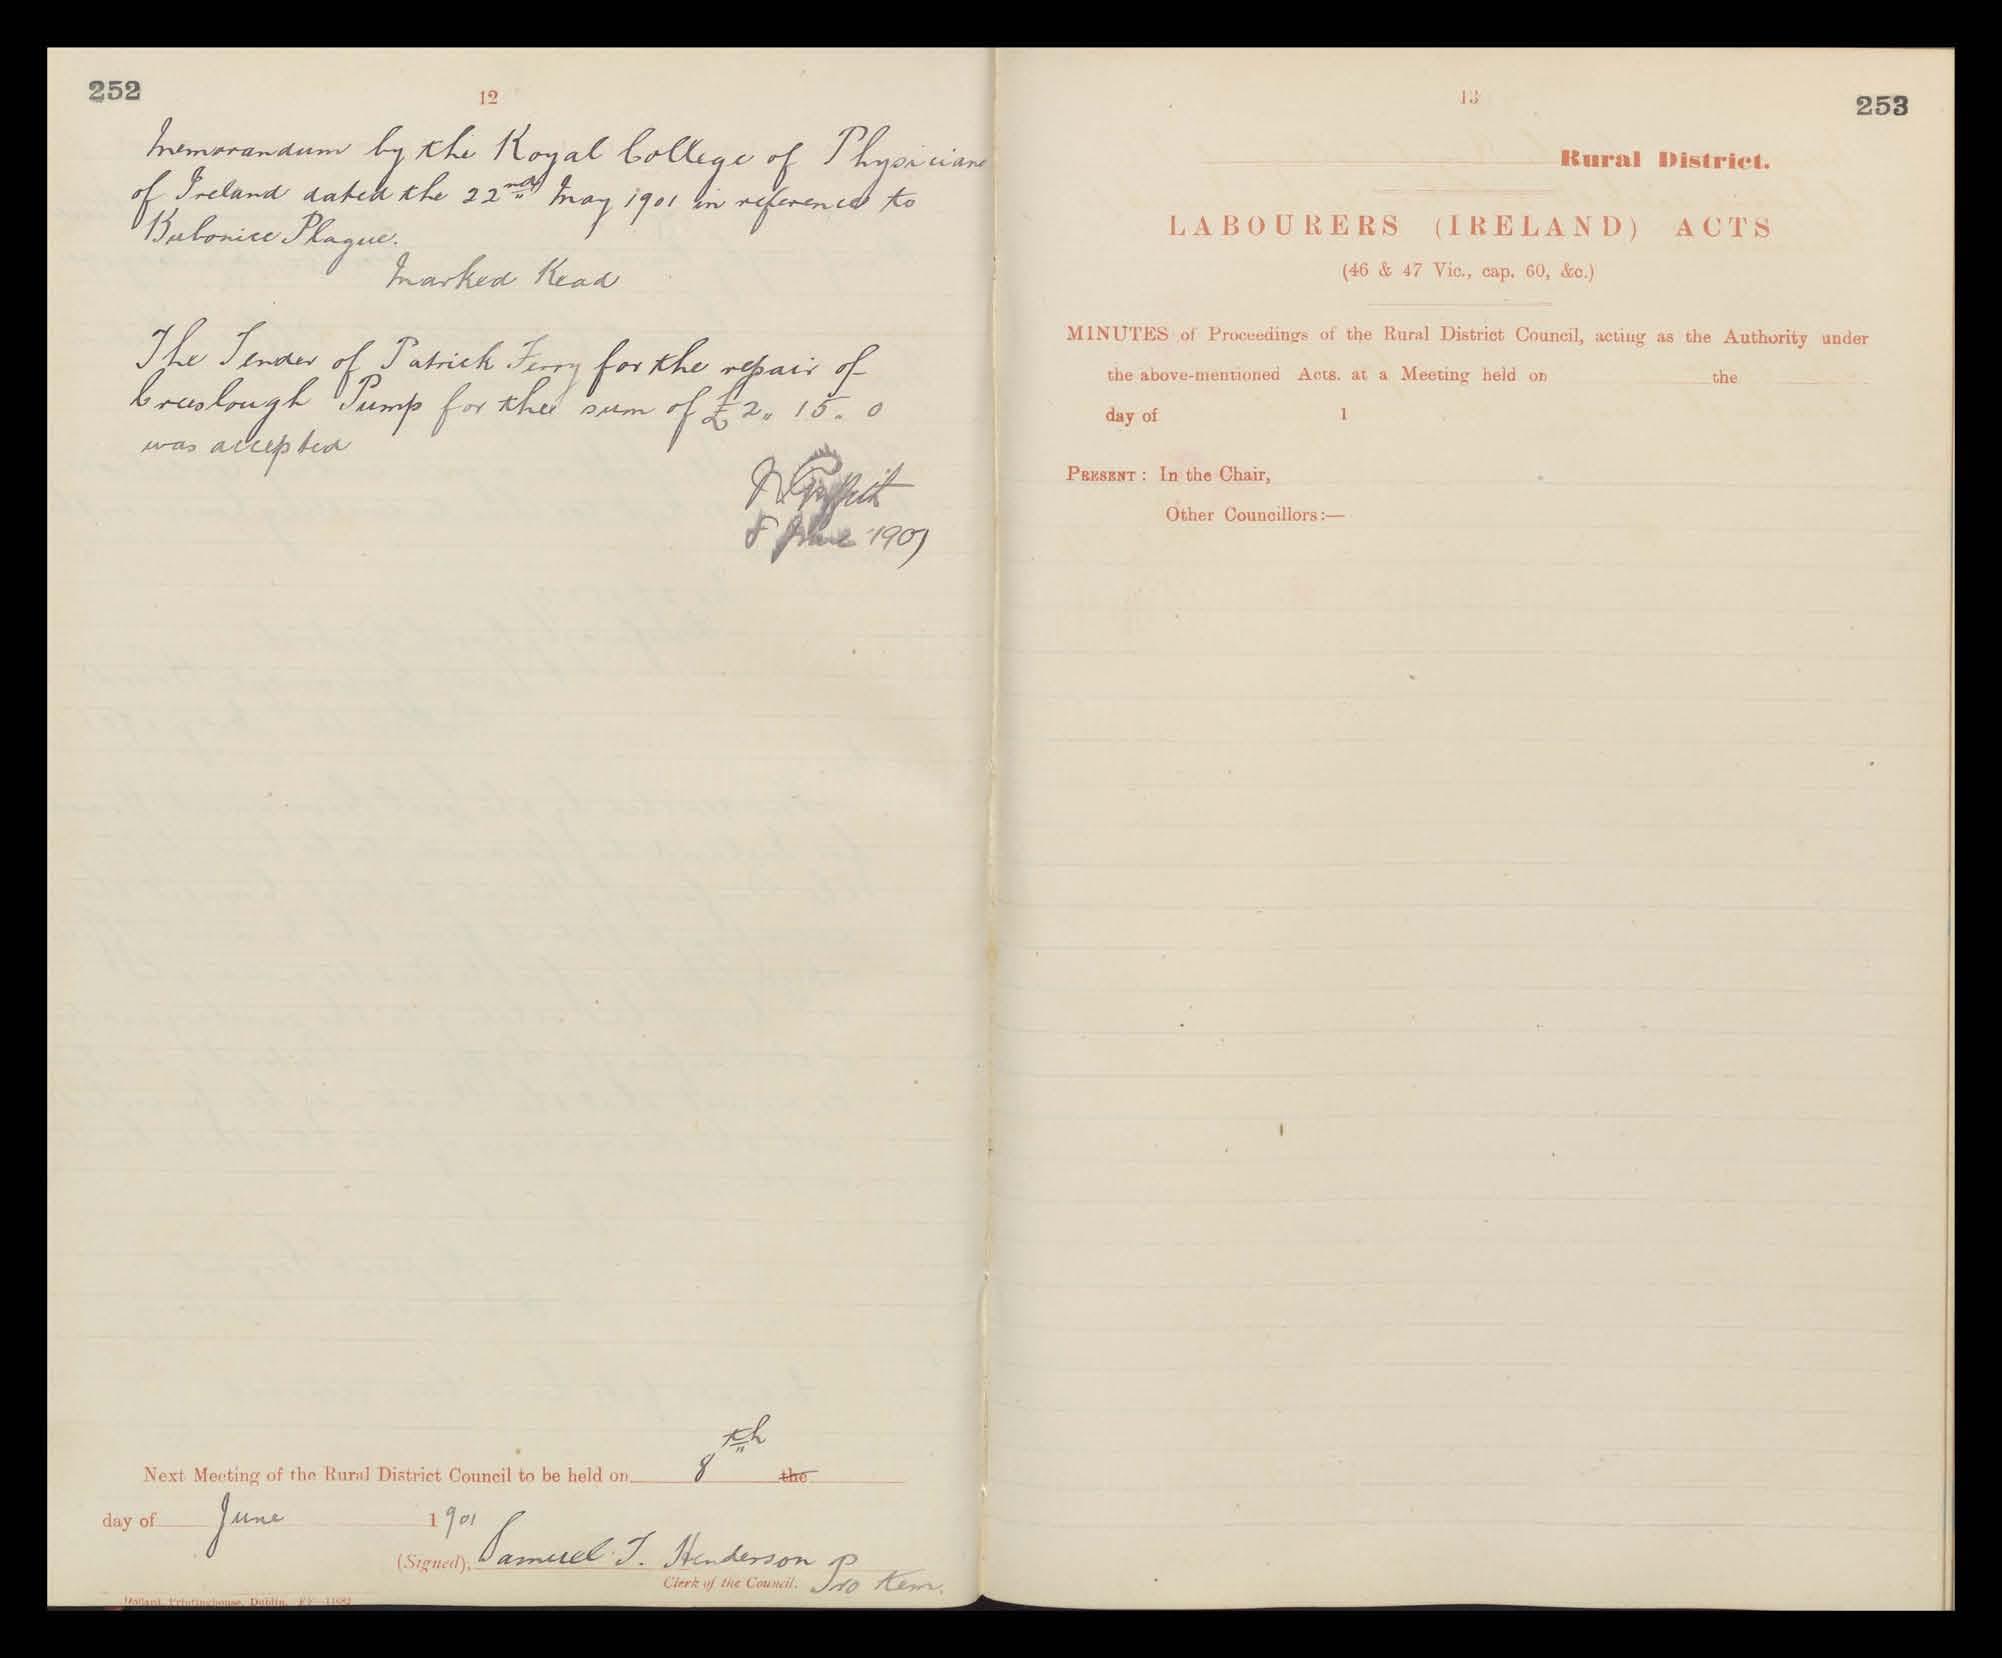 252
12
Memorandum by the Royal College of Physicians
of Ireland dated the 22nd May 1901 in reference to
Bubonice Plague.
Marked Read
The Tender of Patrick Ferry for the repair of
Creeslough Pump for thee sum of £2 " 15 " 0
was accepted
8 June 1901
Next Meeting of the Rural District Council to be held on 8th the
day of June 1901
(Signed), Samuel T. Henderson
Clerk of the Council. Pro tem.
Printinghouse, Dublin.
13
253
Rural District.
LABOURERS (IRELAND) ACTS
(46 & 47 Vic., cap. 60, &c.)
MINUTES of Proceedings of the Rural District Council, acting as the Authority under
the above-mentioned Acts. at a Meeting held on the
day of 1
PRESENT : In the Chair,
Other Councillors:—